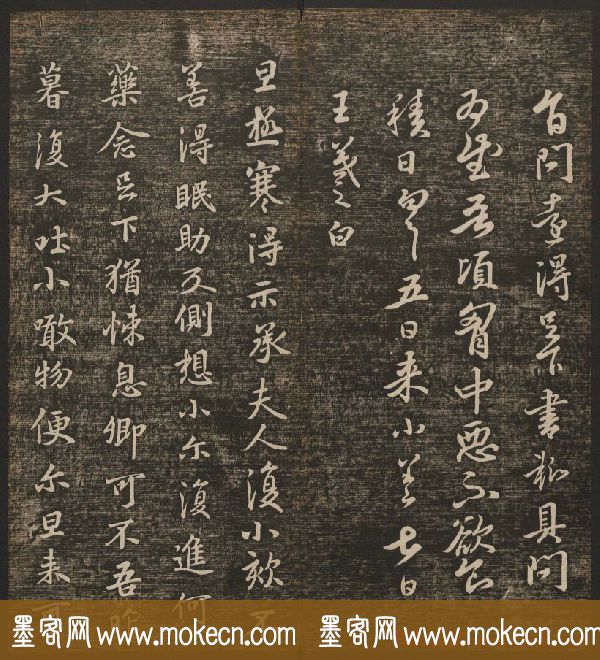 問得足下書具問
為慰吾頃胸中惡不欲食
積日勿勿五日来小差七日
王羲之白
旦極寒得示承夫人復小欬不
善得眠助反側想小尔復進何
藥念足下猶悚息卿可不吾昨
暮復大吐小噉物便尔旦来可
墨客网 www.mokecn.com 墨客网 www.mokecn.com